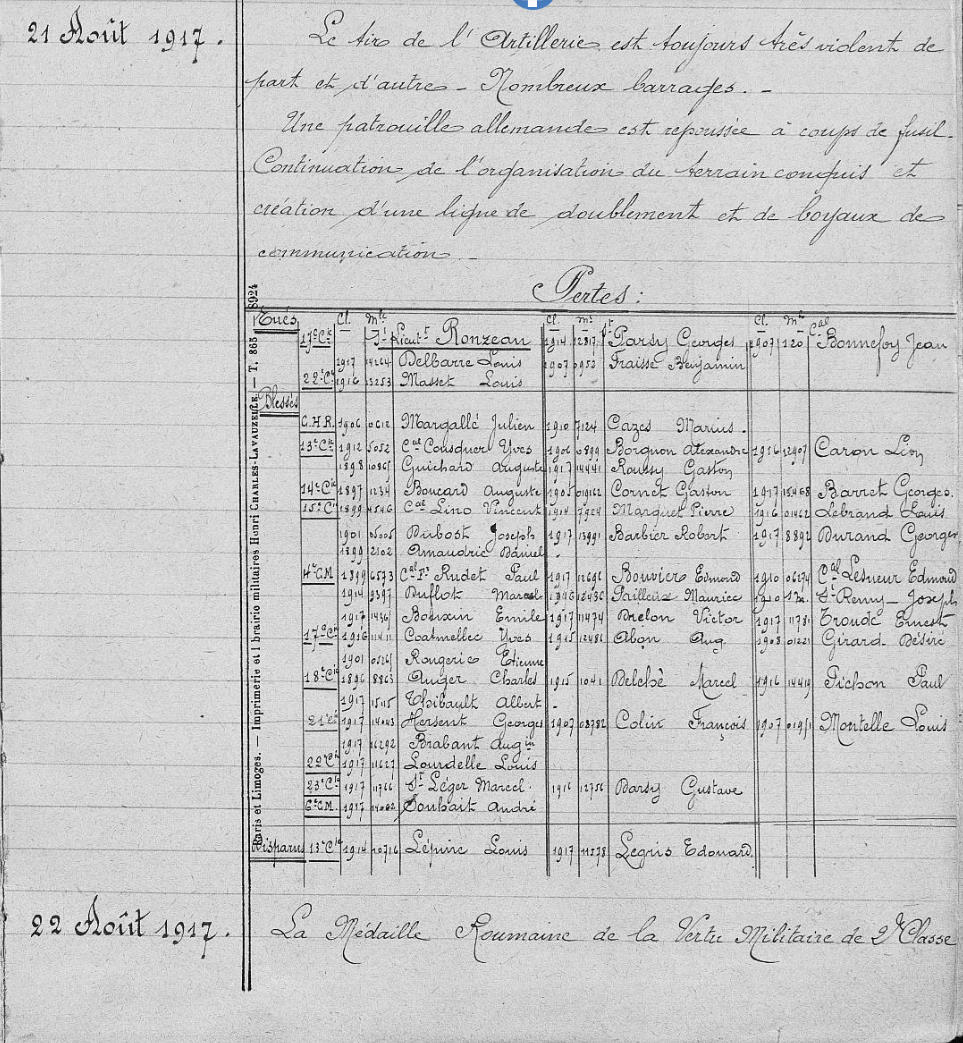 21 Août 1917.
Le tir de l'Artillerie est toujours très violent de
part et d'autre - Nombreux barrages. -
Une patrouille allemande est repoussée à coups de fusil.
Continuation de l'organisation du terrain conquis et
création d'une ligne de doublement et de boyaux de
communication -
Pertes:
Tués Cl. Mle Cl. Mle Cl. Mle
17e Cie Lieut Ronzeau 1914 12817 St Parsy Georges 1907 120 Cal Bonnefoy Jean
1917 14264 Delbarre Louis 1907 Fraisse Benjamin
22e Cie 1916 13253 Masset Louis
Blessés
C.H.R. 1906 0612 Margallé Julien 1910 7124 Cazes Marius.
13e Cie 1912 5052 Cal Cousquer Yves 1906 Borgnon Alexandre 1916 12907 Caron Léon
1898 Guichard Auguste 1917 14441 Roussy Gaston
14e Cie 1897 1234 Boucard Auguste 1905 019162 Cornet Gaston 1917 15468 Barret Georges.
15e Cie 1899 4546 Cal Lino Vincent 1914 7924 Marquet Pierre 1916 Lebrand Louis
1901 Dubost Joseph 1917 13991 Barbier Robert 1917 8892 Durand Georges
1899 2102 Amaudric Daniel
4e C.M. 1899 6573 Cal Fr Rudet Paul 1917 12696 Bouvier Edmond 1910 06274 Cal Lesueur Edmond
1914 9397 Duflot Marcel Pailleux Maurice 1910 St Remy - Joseph
1917 Boursin Emile 1917 11474 Breton Victor 1917 11781 Troude Ernest
17e Cie 1916 11411 Coatmellec Yves 1915 12486 Abon Aug 1908 01221 Girard Désiré
1901 Rougerie Etienne
18e Cie 1896 8863 Auger Charles 1915 1041 Delché Marcel 1916 14419 Pichon Paul
1917 15115 Thibault Albert -
21e Cie 1917 14043 Hersent Georges 1907 08782 Colin François 1907 Montelle Louis
1917 16292 Brabant Augtin
22e Cie 1917 11627 Lourdelle Louis
23e Cie 1917 11766 St Léger Marcel. 1916 12756 Barsy Gustave
6e C.M. 1917 14062 Soubait André
Disparus 13e Cie 1914 10716 Lépine Louis 1917 11278 Legris Edouard
Paris et Limoges. — Imprimerie et librairie militaires Henri CHARLES-LAVAUZELLE. — T, 865 8924
22 Août 1917.
La Médaille Roumaine de la Vertu Militaire de 2e Classe